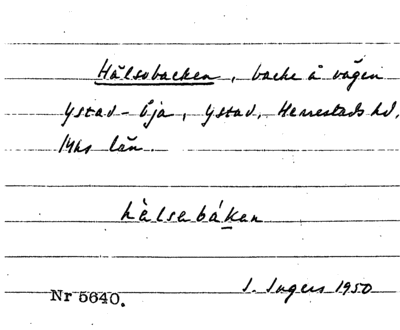 Hälsobacken, backe å vägen
Ystad-Öja, Ystad, Herrestads hd,
Mhs län
hälsabákan
I. Ingers 1950
Nr 5640.